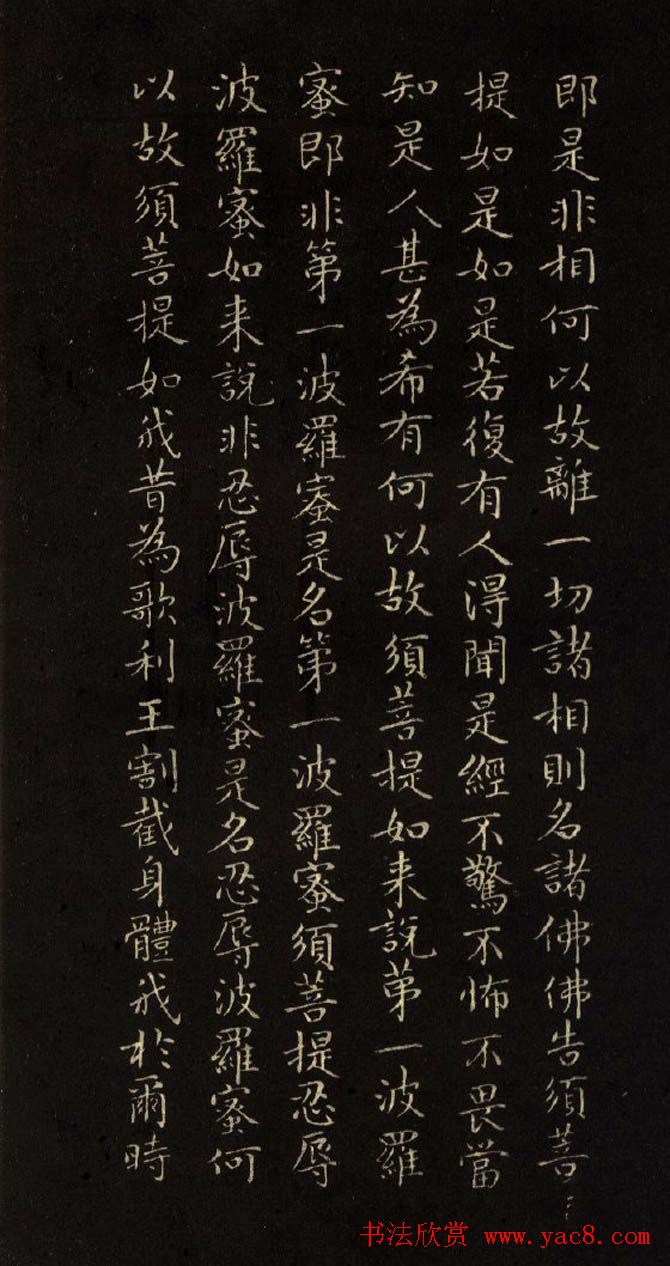 即是非相何以故離一切諸相則名諸佛佛告須菩
提如是如是若復有人得聞是經不驚不怖不畏當
知是人甚為希有何以故須菩提如来說苐一波羅
蜜即非第一波羅蜜是名第一波羅蜜須菩提忍辱
波羅蜜如来說非忍辱波羅蜜是名忍辱波羅蜜何
以故須菩提如我昔為歌利王割截身體我於爾時
书法欣赏 www.yac8.com